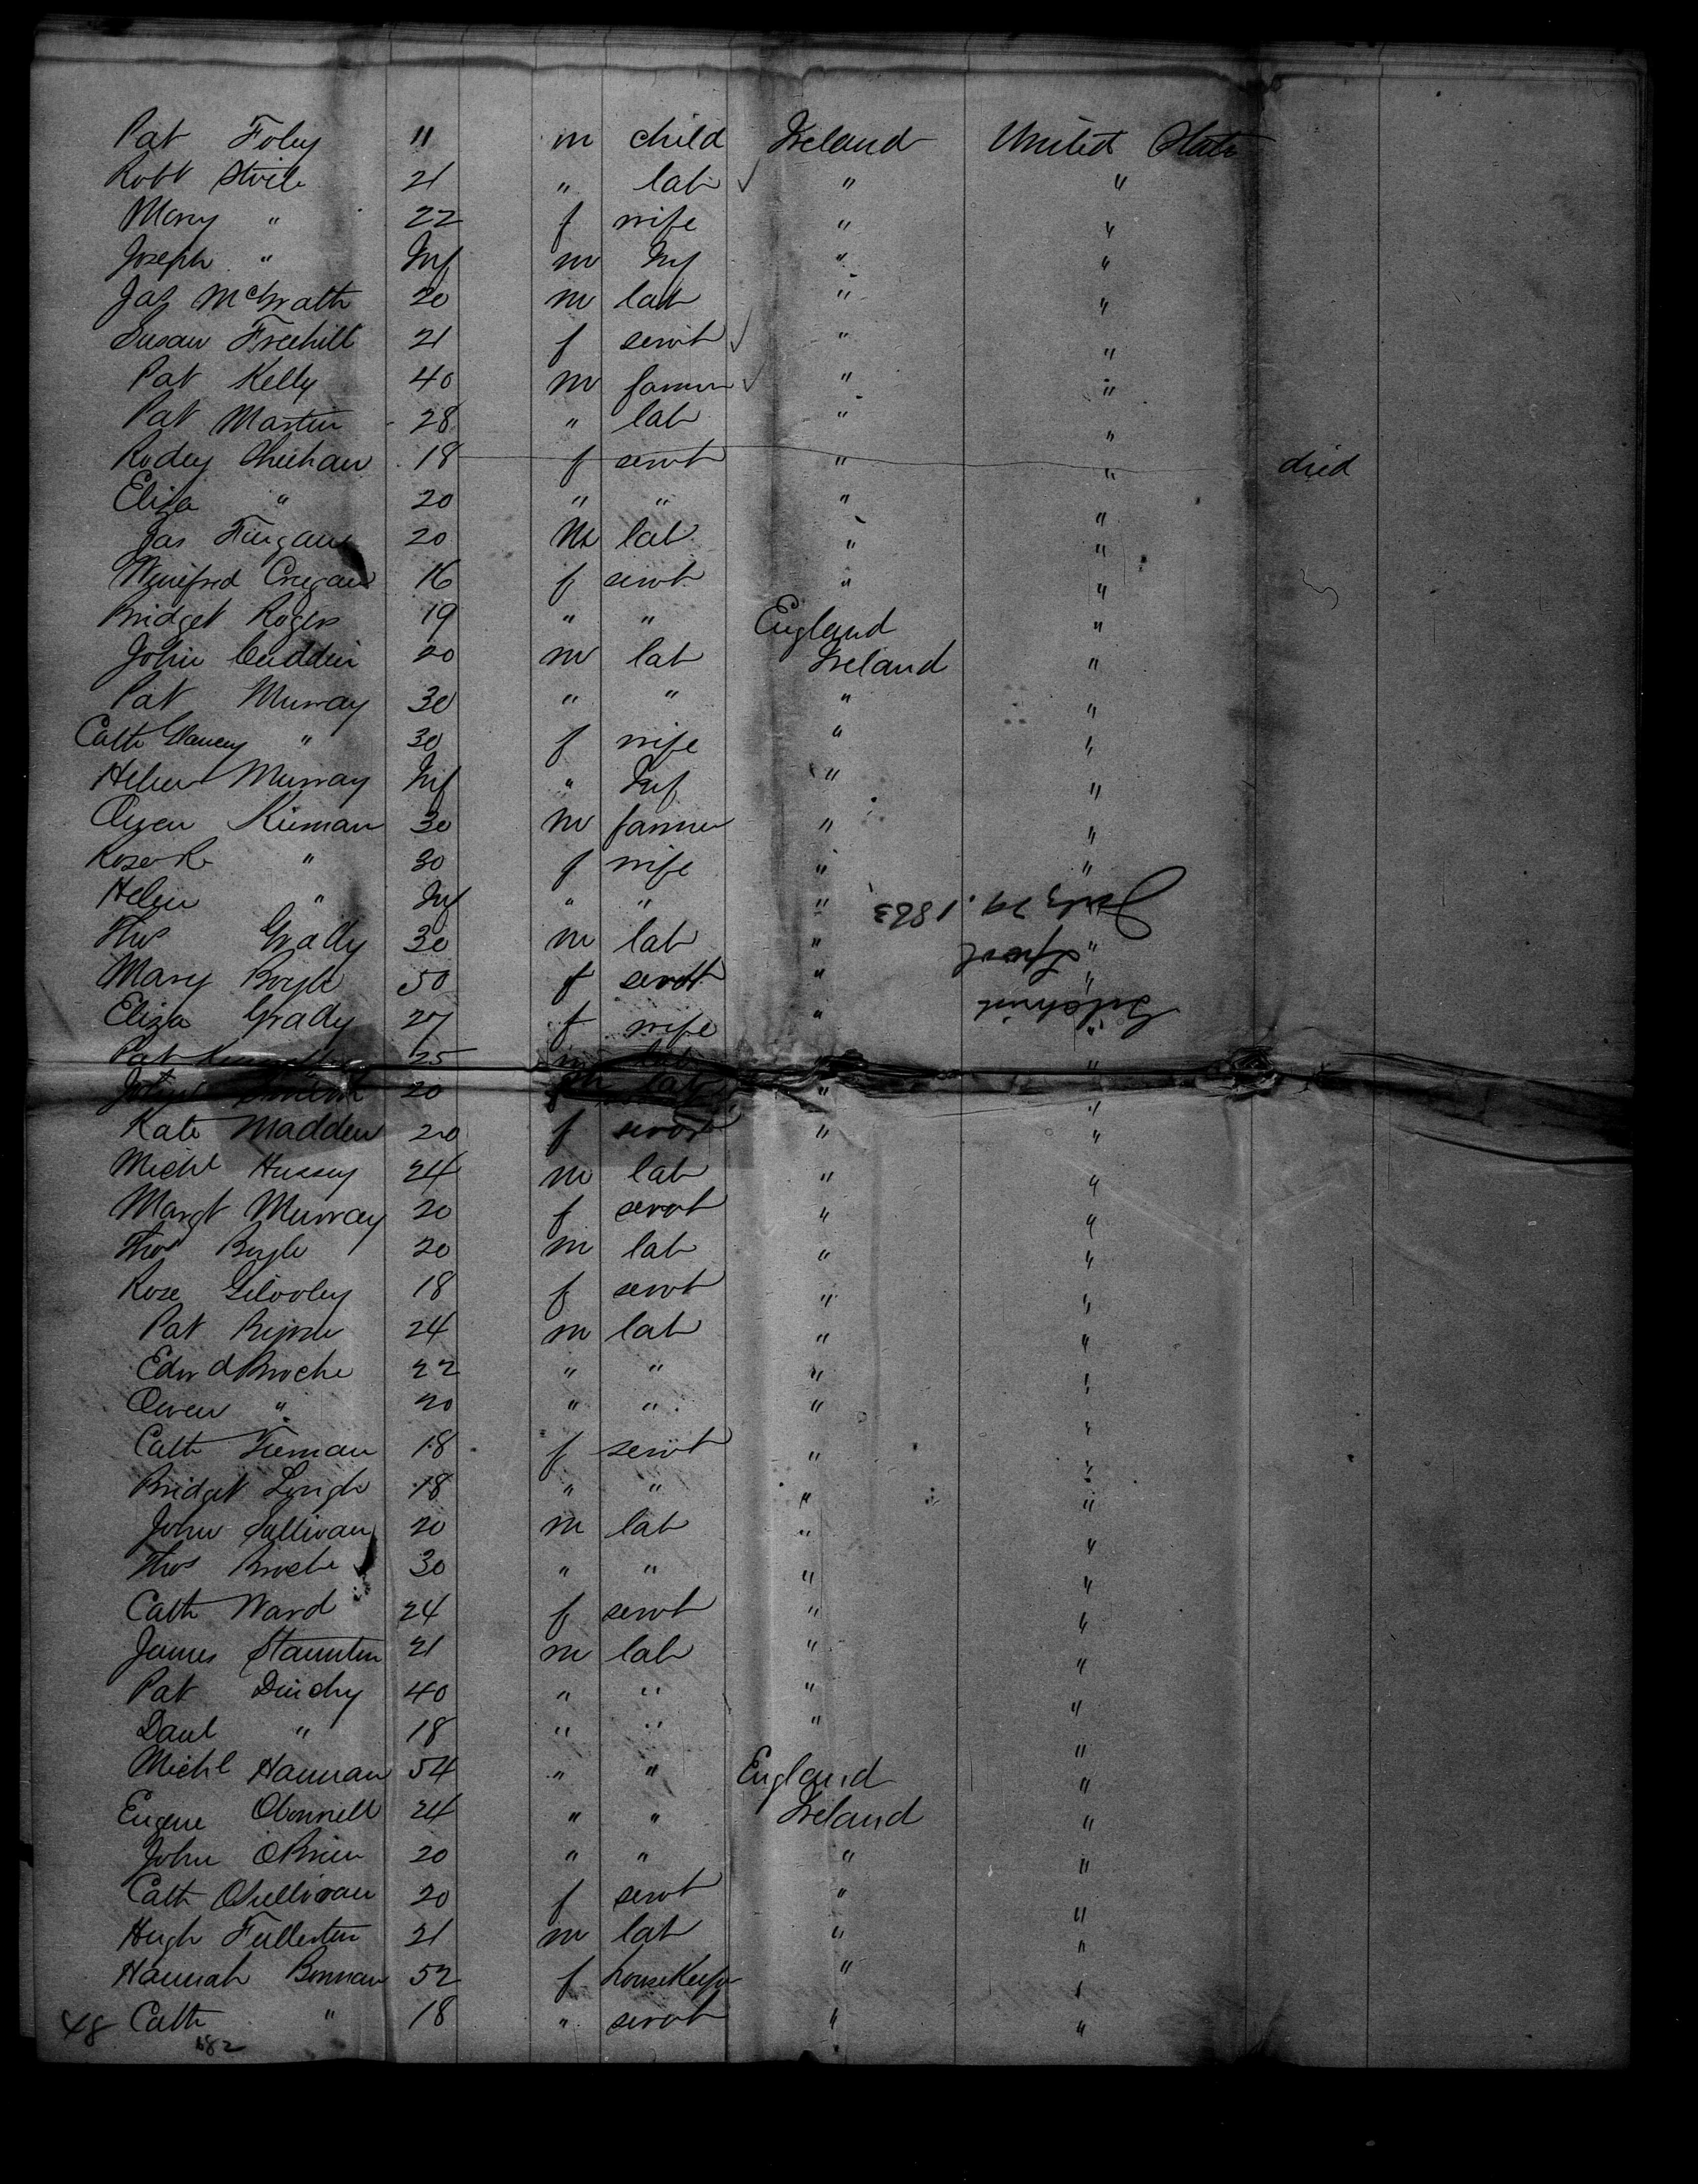 Pat Foley 11 m child Ireland United State
Robt 21 " lab " "
Mary " 22 f wife " "
Joseph " Inf m Inf " "
Jas McGrath 20 m lab " "
Susan Freehill 21 f servt " "
Pat Kelly 40 m farmer " "
Pat Martin 28 " lab " "
Rodey Sheehan 18 f servt " " died
Eliza " 20 " " " "
Jas Finegan 20 m lab " "
Winifred Cregan 16 f servt " "
Bridget Rogers 19 " " England "
John Cuddin 20 m lab Ireland "
Pat Murray 30 " " " "
Cath Glancy " 30 f wife " "
Helen Murray Inf " Inf " "
Owen Kiernan 30 m farmer " "
Rose " 30 f wife " "
Helen " Inf " " " "
Thos Grady 30 m lab " "
Mary Boyle 50 f servt " "
Eliza Grady 27 f wife " "
July 29. 1863
Pat 25 m lab "
20 m lab " "
Kate Madden 20 f servt " "
Michl Hussey 24 m lab " "
Margt Murray 20 f servt " "
Thos Boyle 20 m lab " "
Rose Gilooley 18 f servt " "
Pat 24 m lab " "
Edwd Broche 22 " " " "
Owen " 20 " " " "
Cath Tiernan 18 f servt " "
Bridget 18 " " " "
John Sullivan 20 m lab " "
Thos Broche 30 " " " "
Cath Ward 24 f servt " "
James Staunton 21 m lab " "
Pat 40 " " " "
Danl " 18 " " " "
Michl Hannan 54 " " England "
Eugene OConnell 24 " " Ireland "
John OBrien 20 " " " "
Cath OSullivan 20 f servt " "
Hugh Fullerton 21 m lab " "
Hannah 52 f housekeeper " "
48 Cath " 18 " servt " "
682